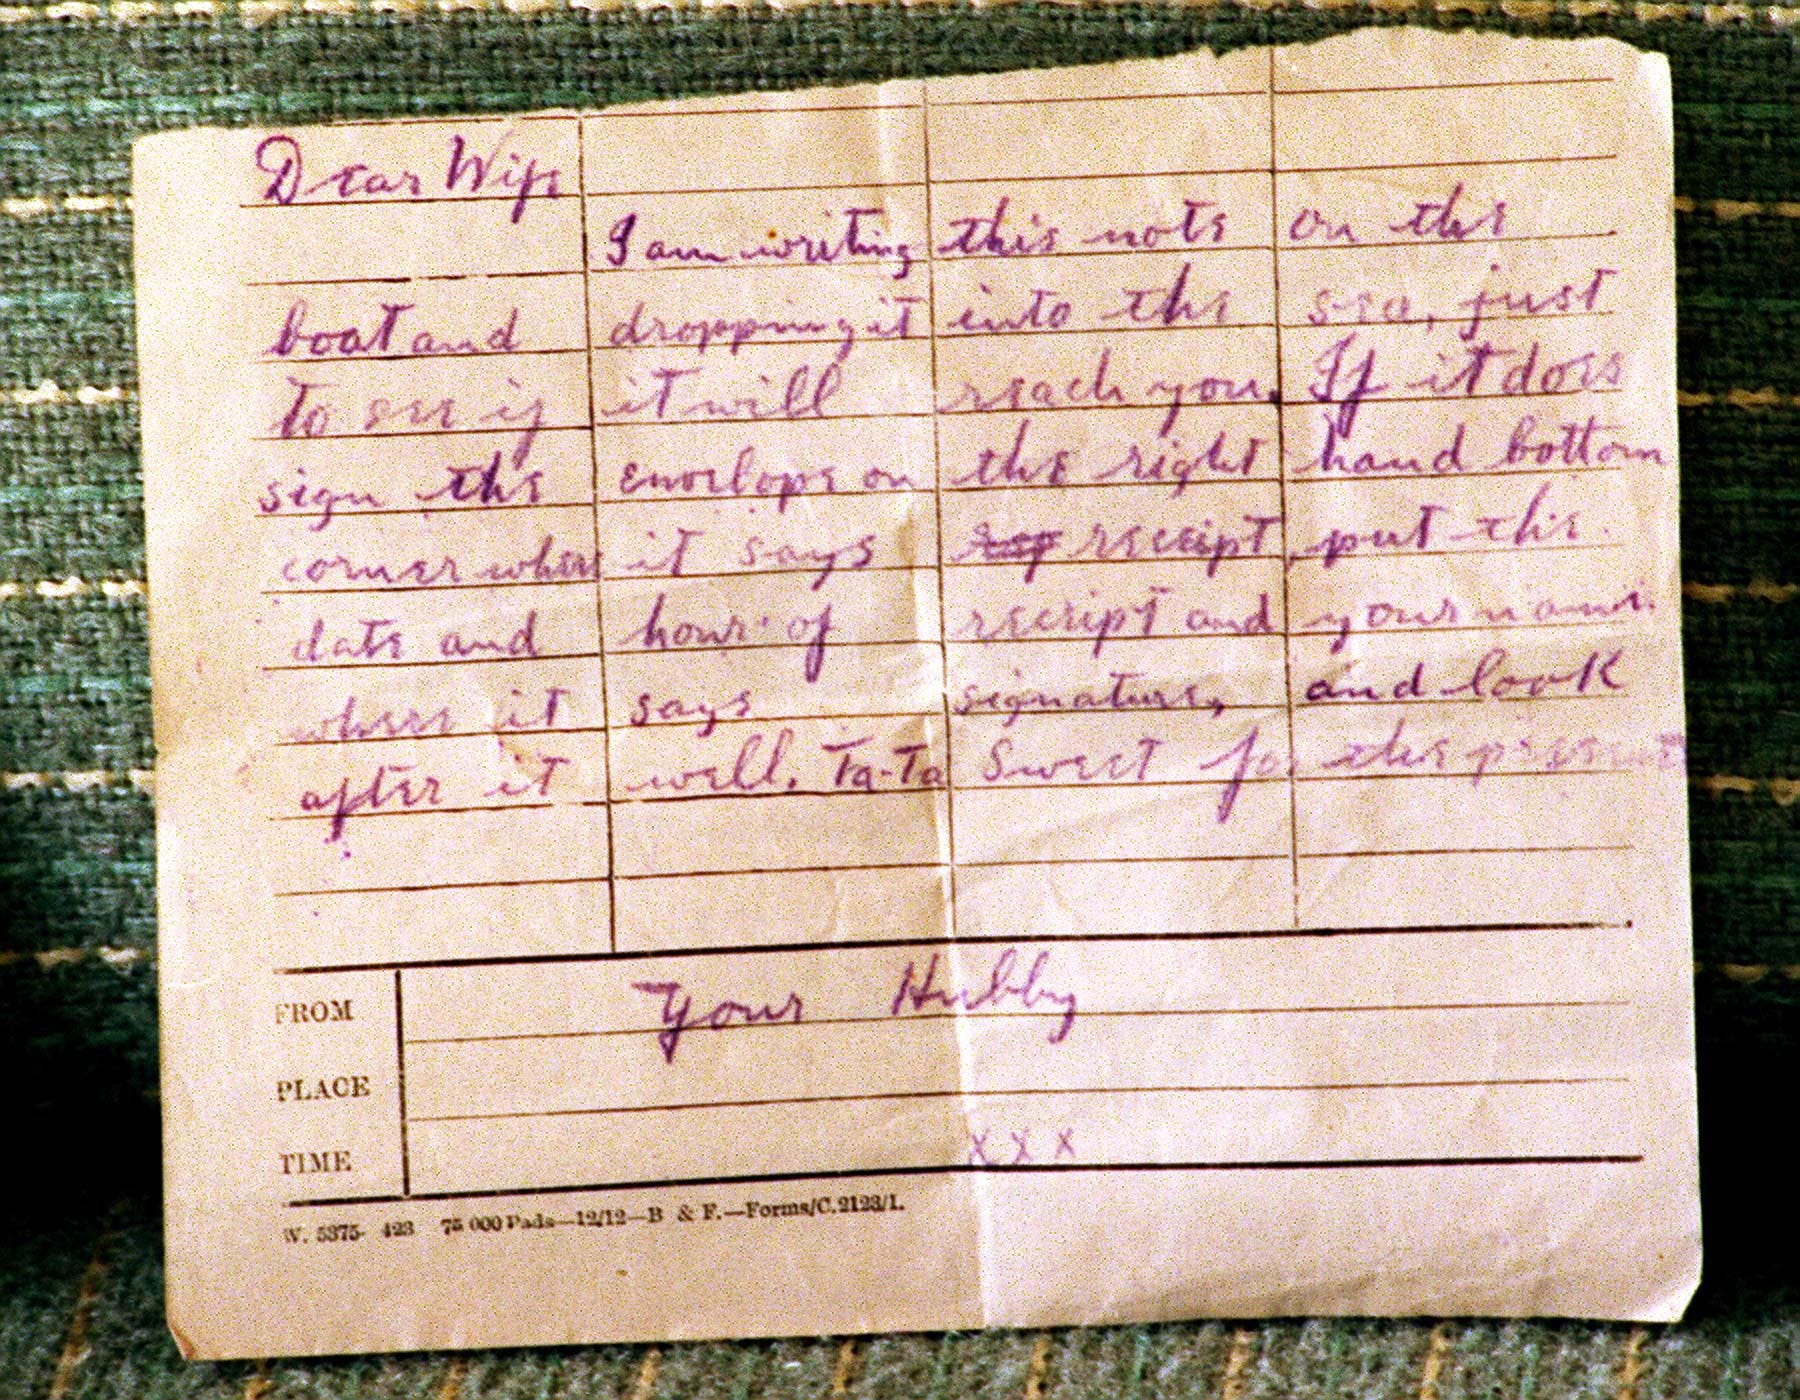 Dear Wife
I am writing this note on the
boat and dropping it into the sea, just
to see if it will reach you. If it does
sign the envelope on the right hand bottom
corner where it says rep receipt, put the
date and hour of receipt and your name
where it says signature, and look
after it well. Ta-Ta Sweet for the present
Your Hubby
FROM
PLACE
TIME
x x x
W. 5375- 423 75 000 Pads—12/12—B & F.—Forms/C.2123/1.